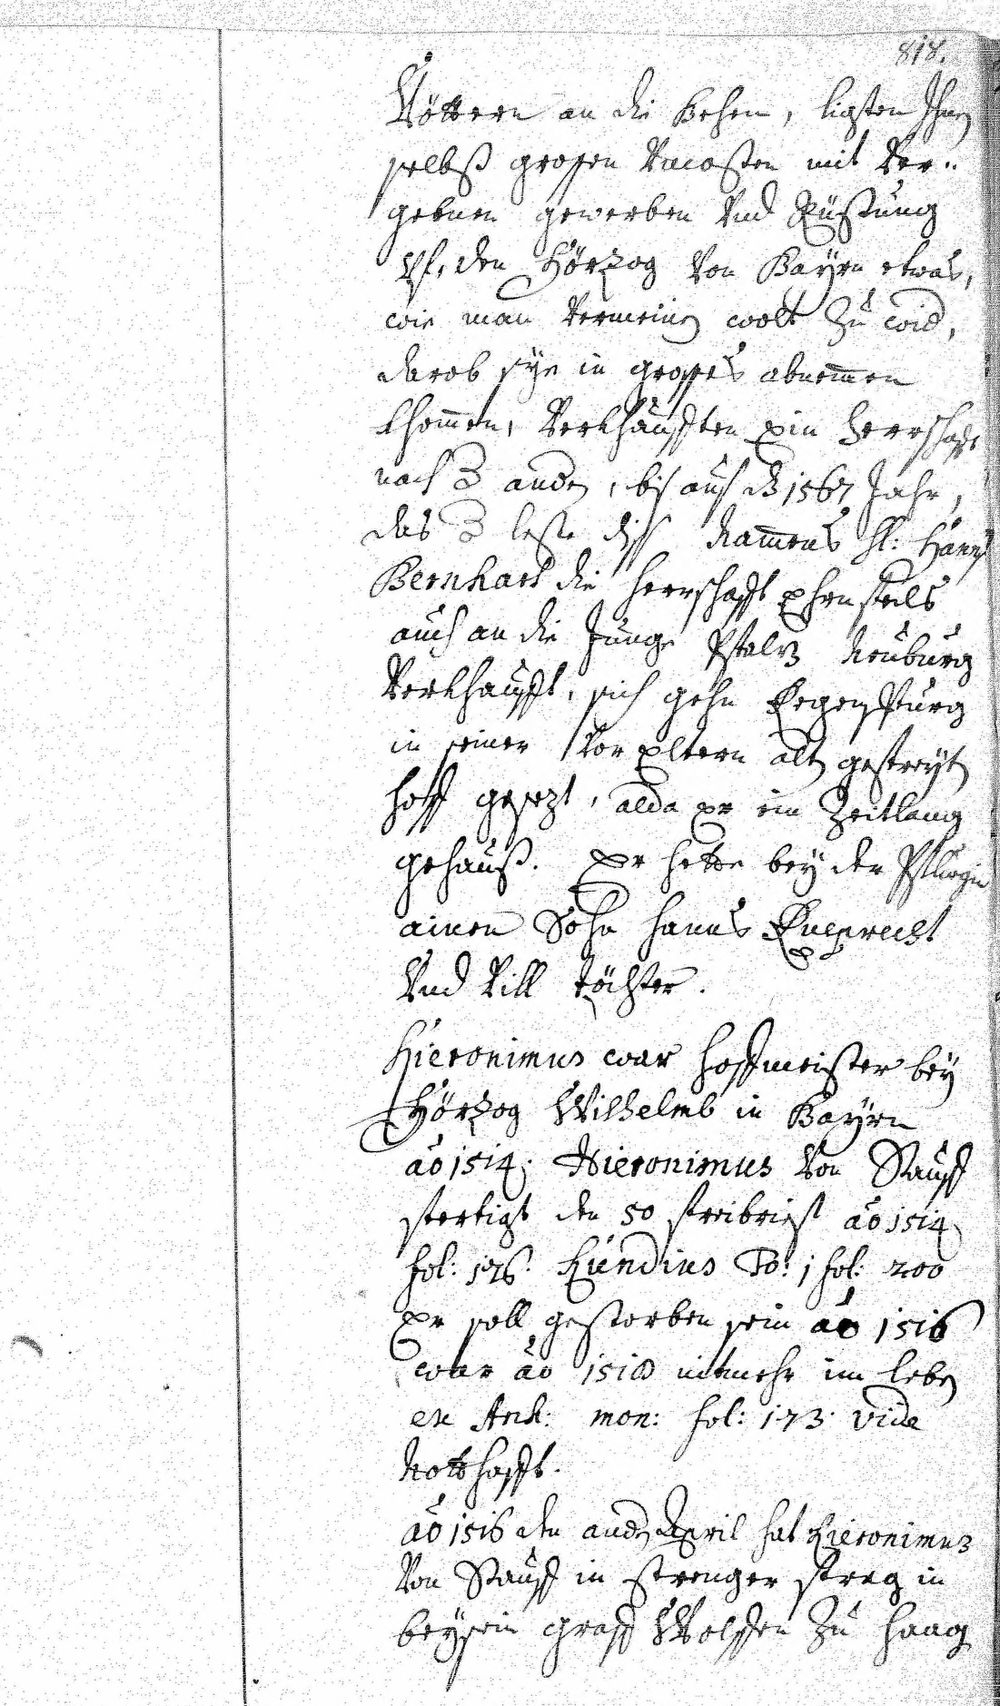 818.
Vöttern an die Behem, ligten Ihnen
selbst grossen Vncosten mit Ver-
gebnen gewerben Vnd Rüstung
Vf, den Hörzog Von Bayrn etwas,
wie man Vermeinen wolt zu wid,
darob sye in grosses abnemmen
khommen, Verkhaufften ein Herrschafft
nach der andern, bis auf das 1567 Jahr,
das der leste diss Nammens H: Hanns
Bernhart die Herrschafft Ehrnfels
auch an die Junge Pfalz Neuburg
Verkhaufft, sich gehn Regenspurg
in seiner Vor Eltern alten gefreyten
hoff gesezt, alda er ein Zeitlang
gehaust. Er hette bey der Pflügin
ainen Sohn Hanns Rueprecht
Vnd Vill töchter.
Hieronimus war Hoffmeister bey
Hörzog Wilhelmb in Bayrn
ao 1514. Hieronimus Von Stauff
fertigt den 50 freibrieff ao 1514
fol: 176. Hundius To: 1 fol: 200
Er soll gestorben sein ao 1516
war ao 1518 nitmehr im leben
ex Arch: mon: fol: 173. vide
Notthafft.
ao 1516 den andern April hat Hieronimus
Von Stauff in strenger frag in
beysein Graff Wolffen zu Haag